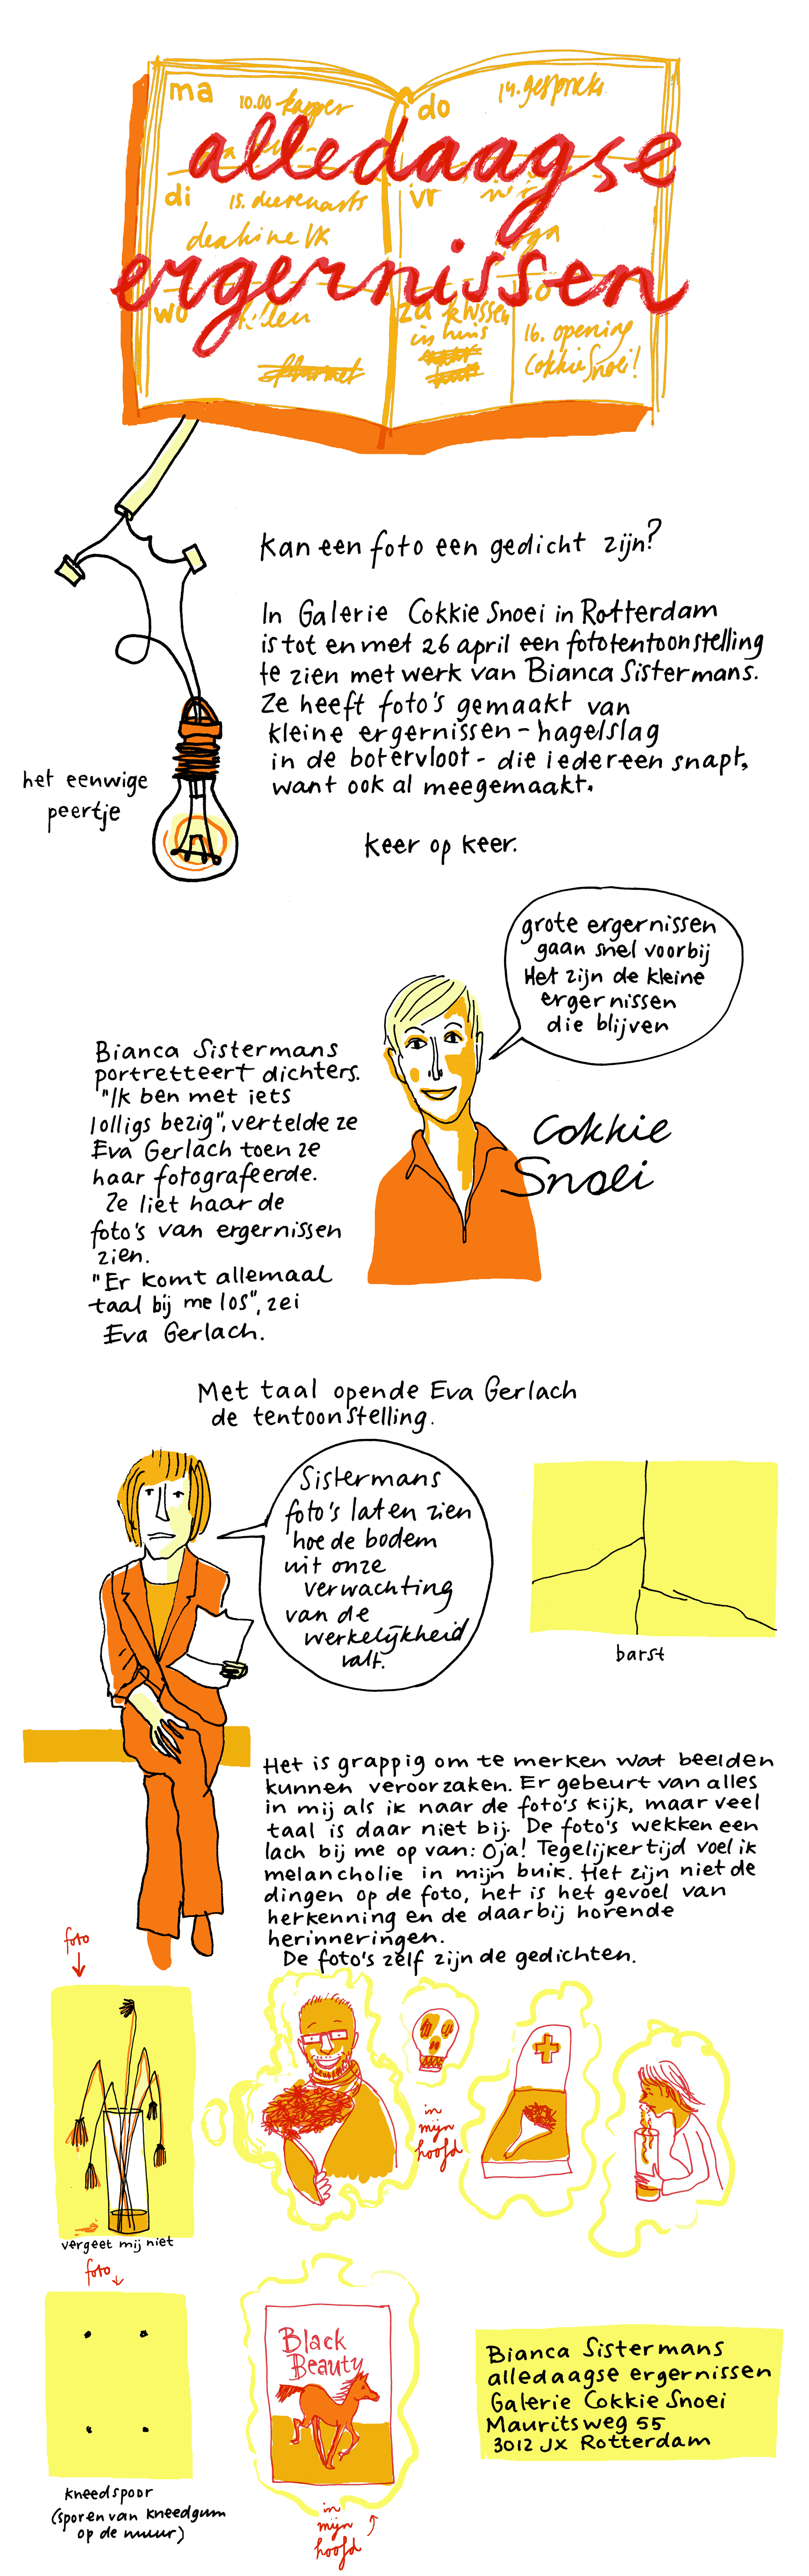 alledaagse
ergernissen
ma
10.00 kapper
di
15. dierenarts
deadline VK
wo
do
14. gesprek
vr
za kussen
in huis
16. opening
Cokkie Snoei!
Kan een foto een gedicht zijn?
In Galerie Cokkie Snoei in Rotterdam
is tot en met 26 april een fototentoonstelling
te zien met werk van Bianca Sistermans.
Ze heeft foto's gemaakt van
kleine ergernissen - hagelslag
in de botervloot - die iedereen snapt,
want ook al meegemaakt.
keer op keer.
het eenwige
peertje
grote ergernissen
gaan snel voorbij
Het zijn de kleine
ergernissen
die blijven
Cokkie
Snoei
Bianca Sistermans
portretteert dichters.
"Ik ben met iets
lolligs bezig", vertelde ze
Eva Gerlach toen ze
haar fotografeerde.
Ze liet haar de
foto's van ergernissen
zien.
"Er komt allemaal
taal bij me los", zei
Eva Gerlach.
Met taal opende Eva Gerlach
de tentoonstelling.
Sistermans
foto's laten zien
hoe de bodem
uit onze
verwachting
van de
werkelijkheid
valt.
barst
Het is grappig om te merken wat beelden
kunnen veroorzaken. Er gebeurt van alles
in mij als ik naar de foto's kijk, maar veel
taal is daar niet bij. De foto's wekken een
lach bij me op van: Oja! Tegelijkertijd voel ik
melancholie in mijn buik. Het zijn niet de
dingen op de foto, het is het gevoel van
herkenning en de daarbij horende
herinneringen.
De foto's zelf zijn de gedichten.
foto
in
mijn
hoofd
vergeet mij niet
foto
Black
Beauty
kneedspoor
(sporen van kneedgum
op de muur)
in
mijn
hoofd
Bianca Sistermans
alledaagse ergernissen
Galerie Cokkie Snoei
Mauritsweg 55
3012 JX Rotterdam